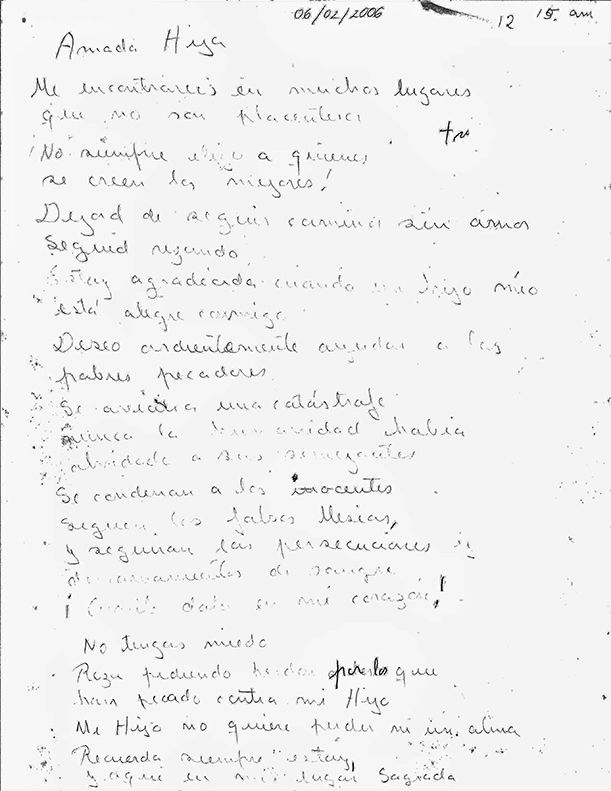 06/02/2006 12 15. am
Amada Hija
Me encontrareis en muchos lugares
que no son placenteros
¡No siempre elijo a quienes
se creen los mejores!
Dejad de seguir camino sin amor
Seguid rezando
Estoy agradecida cuando un hijo mío
está alegre conmigo
Deseo ardientemente ayudar a los
pobres pecadores
Se avecina una catástrofe
nunca la humanidad había
olvidado a sus semejantes
Se condenan a los inocentes
seguen los falsos Mesías,
y seguirán las persecuciones y
derramamientos de sangre
¡ Cuanto dolor en mi corazón!
No tengas miedo
Reza pidiendo perdón por los que
han pecado contra mi Hijo
Mi Hijo no quiere perder ni un alma
Recuerda siempre estoy,
y aquí en mi lugar Sagrado